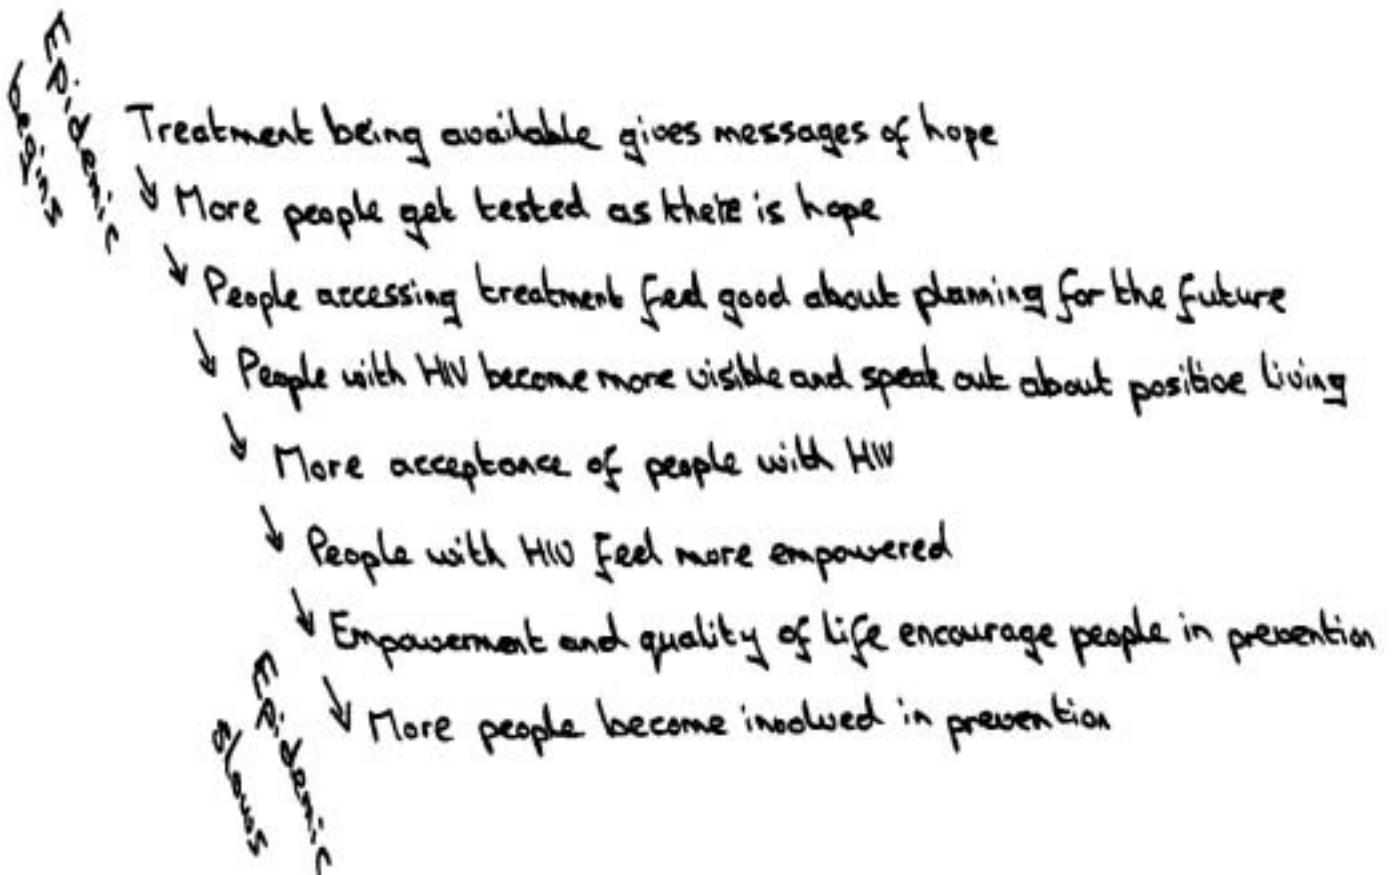 Epidemic
begins
Treatment being available gives messages of hope
More people get tested as there is hope
People accessing treatment feel good about planning for the future
People with HIV become more visible and speak out about positive living
More acceptance of people with HIV
People with HIV feel more empowered
Empowerment and quality of life encourage people in prevention
More people become involved in prevention
Epidemic
slows